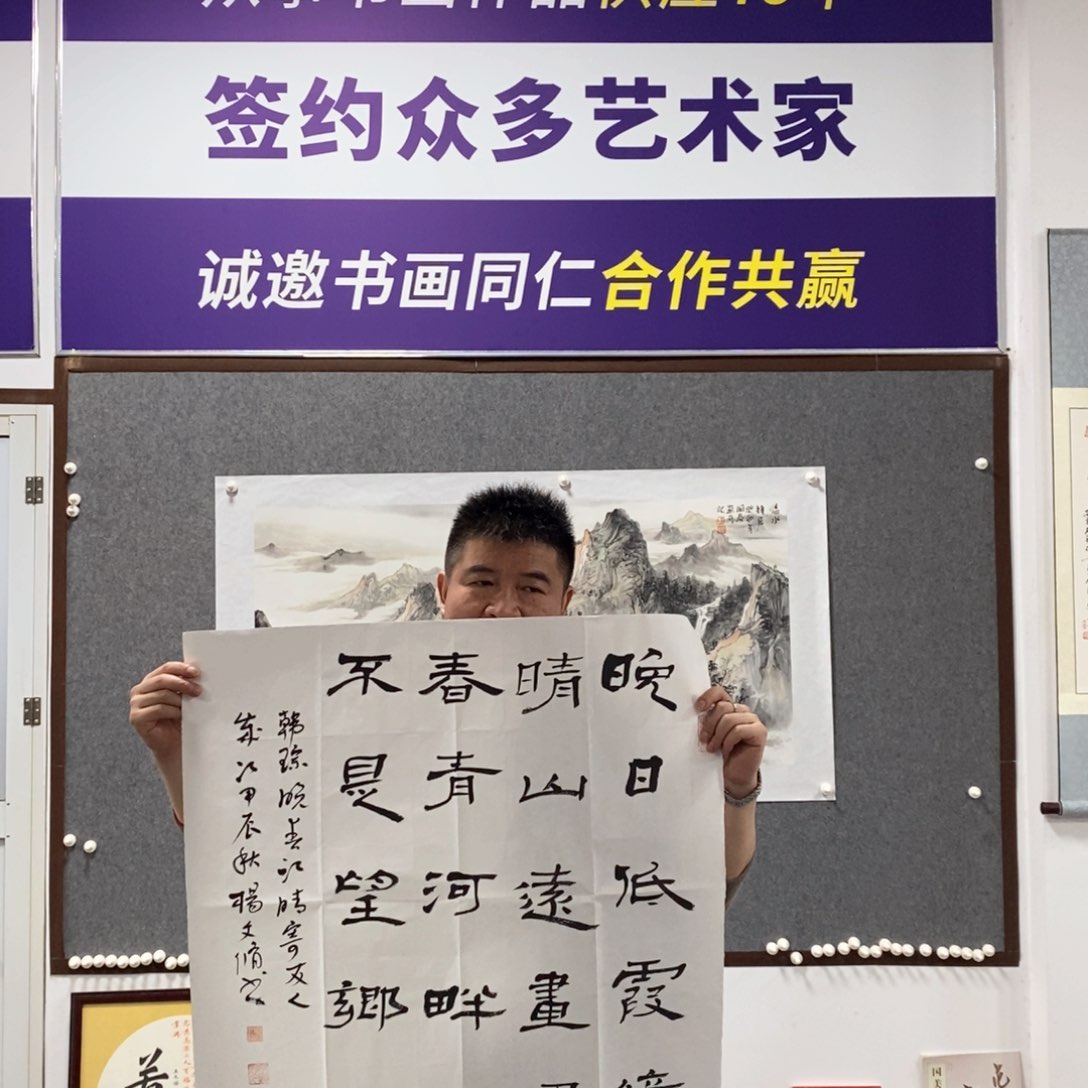 签约众多艺术家
诚邀书画同仁合作共赢
晚日低霞
晴山遠畫
春青河畔
不是望鄉
韩琮晚春江晴寄友人
歲次甲辰秋楊文脩书